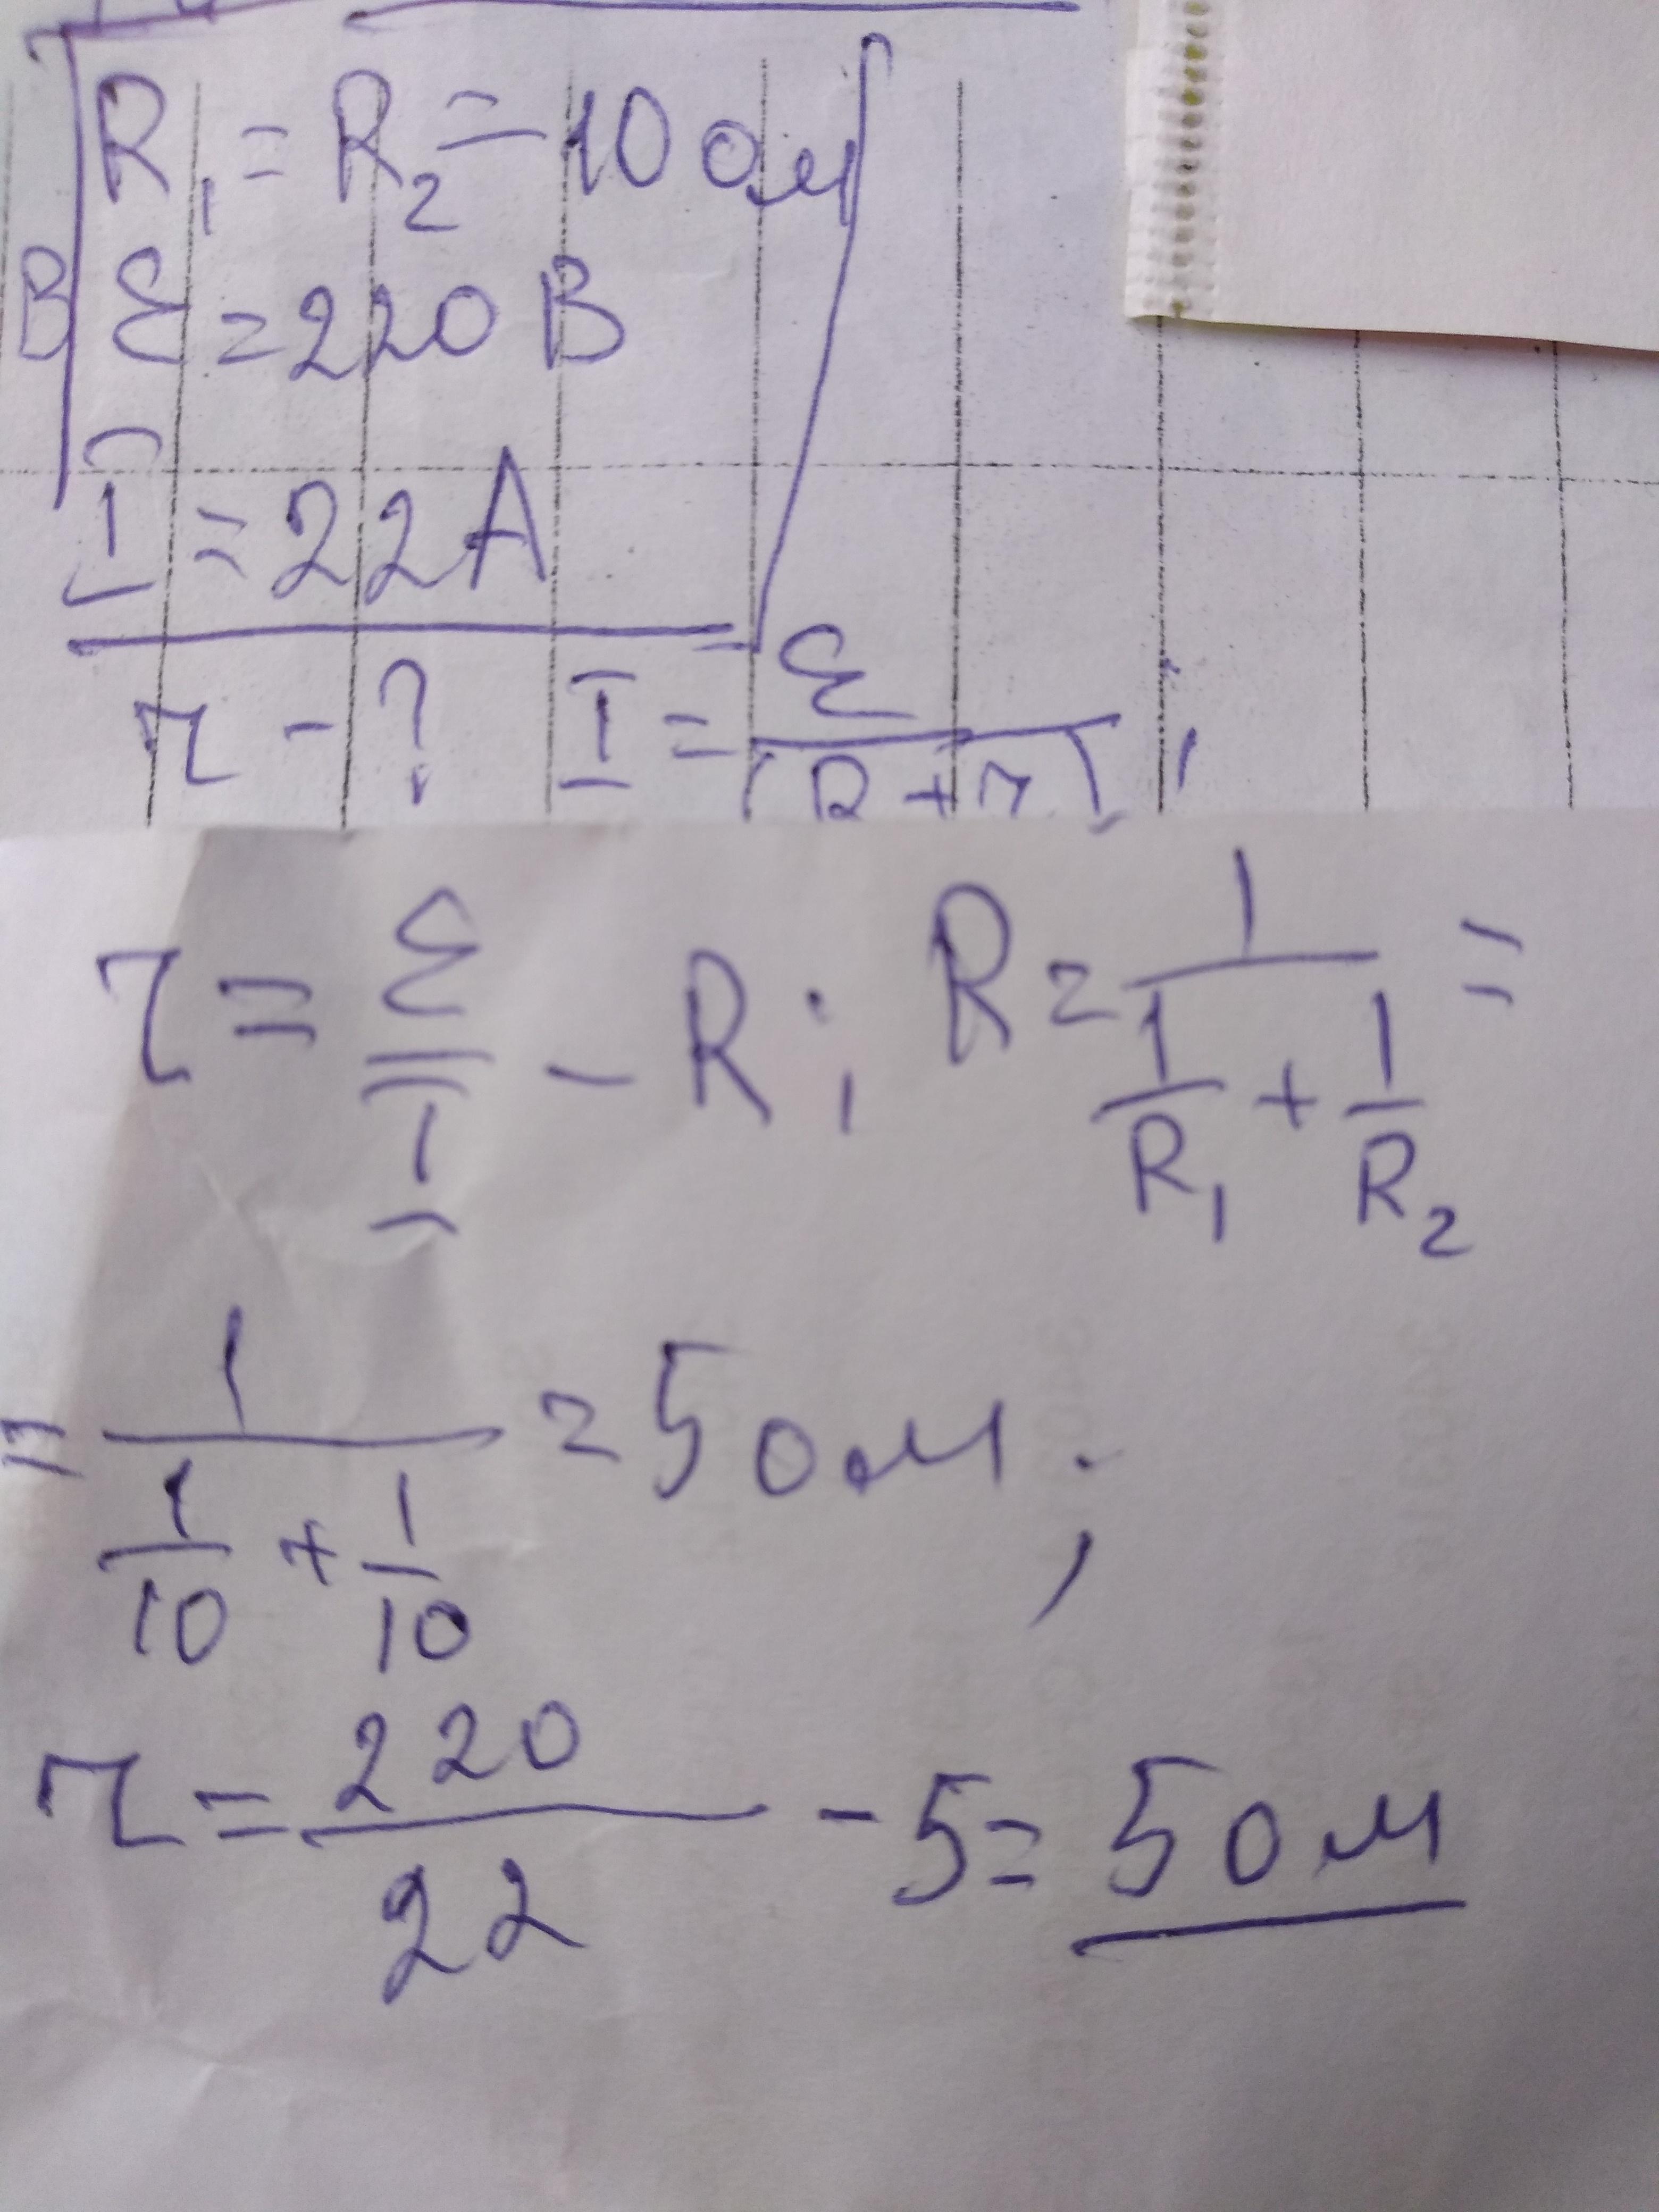 R₁ = R₂ = 10 ом
В
ε = 220 В
I = 22 А
r - ? I = ε / (R + r) ;
r = ε / I - R ; R = 1 / (1/R₁ + 1/R₂) =
= 1 / (1/10 + 1/10) = 5 ом ;
r = 220 / 22 - 5 = 5 ом